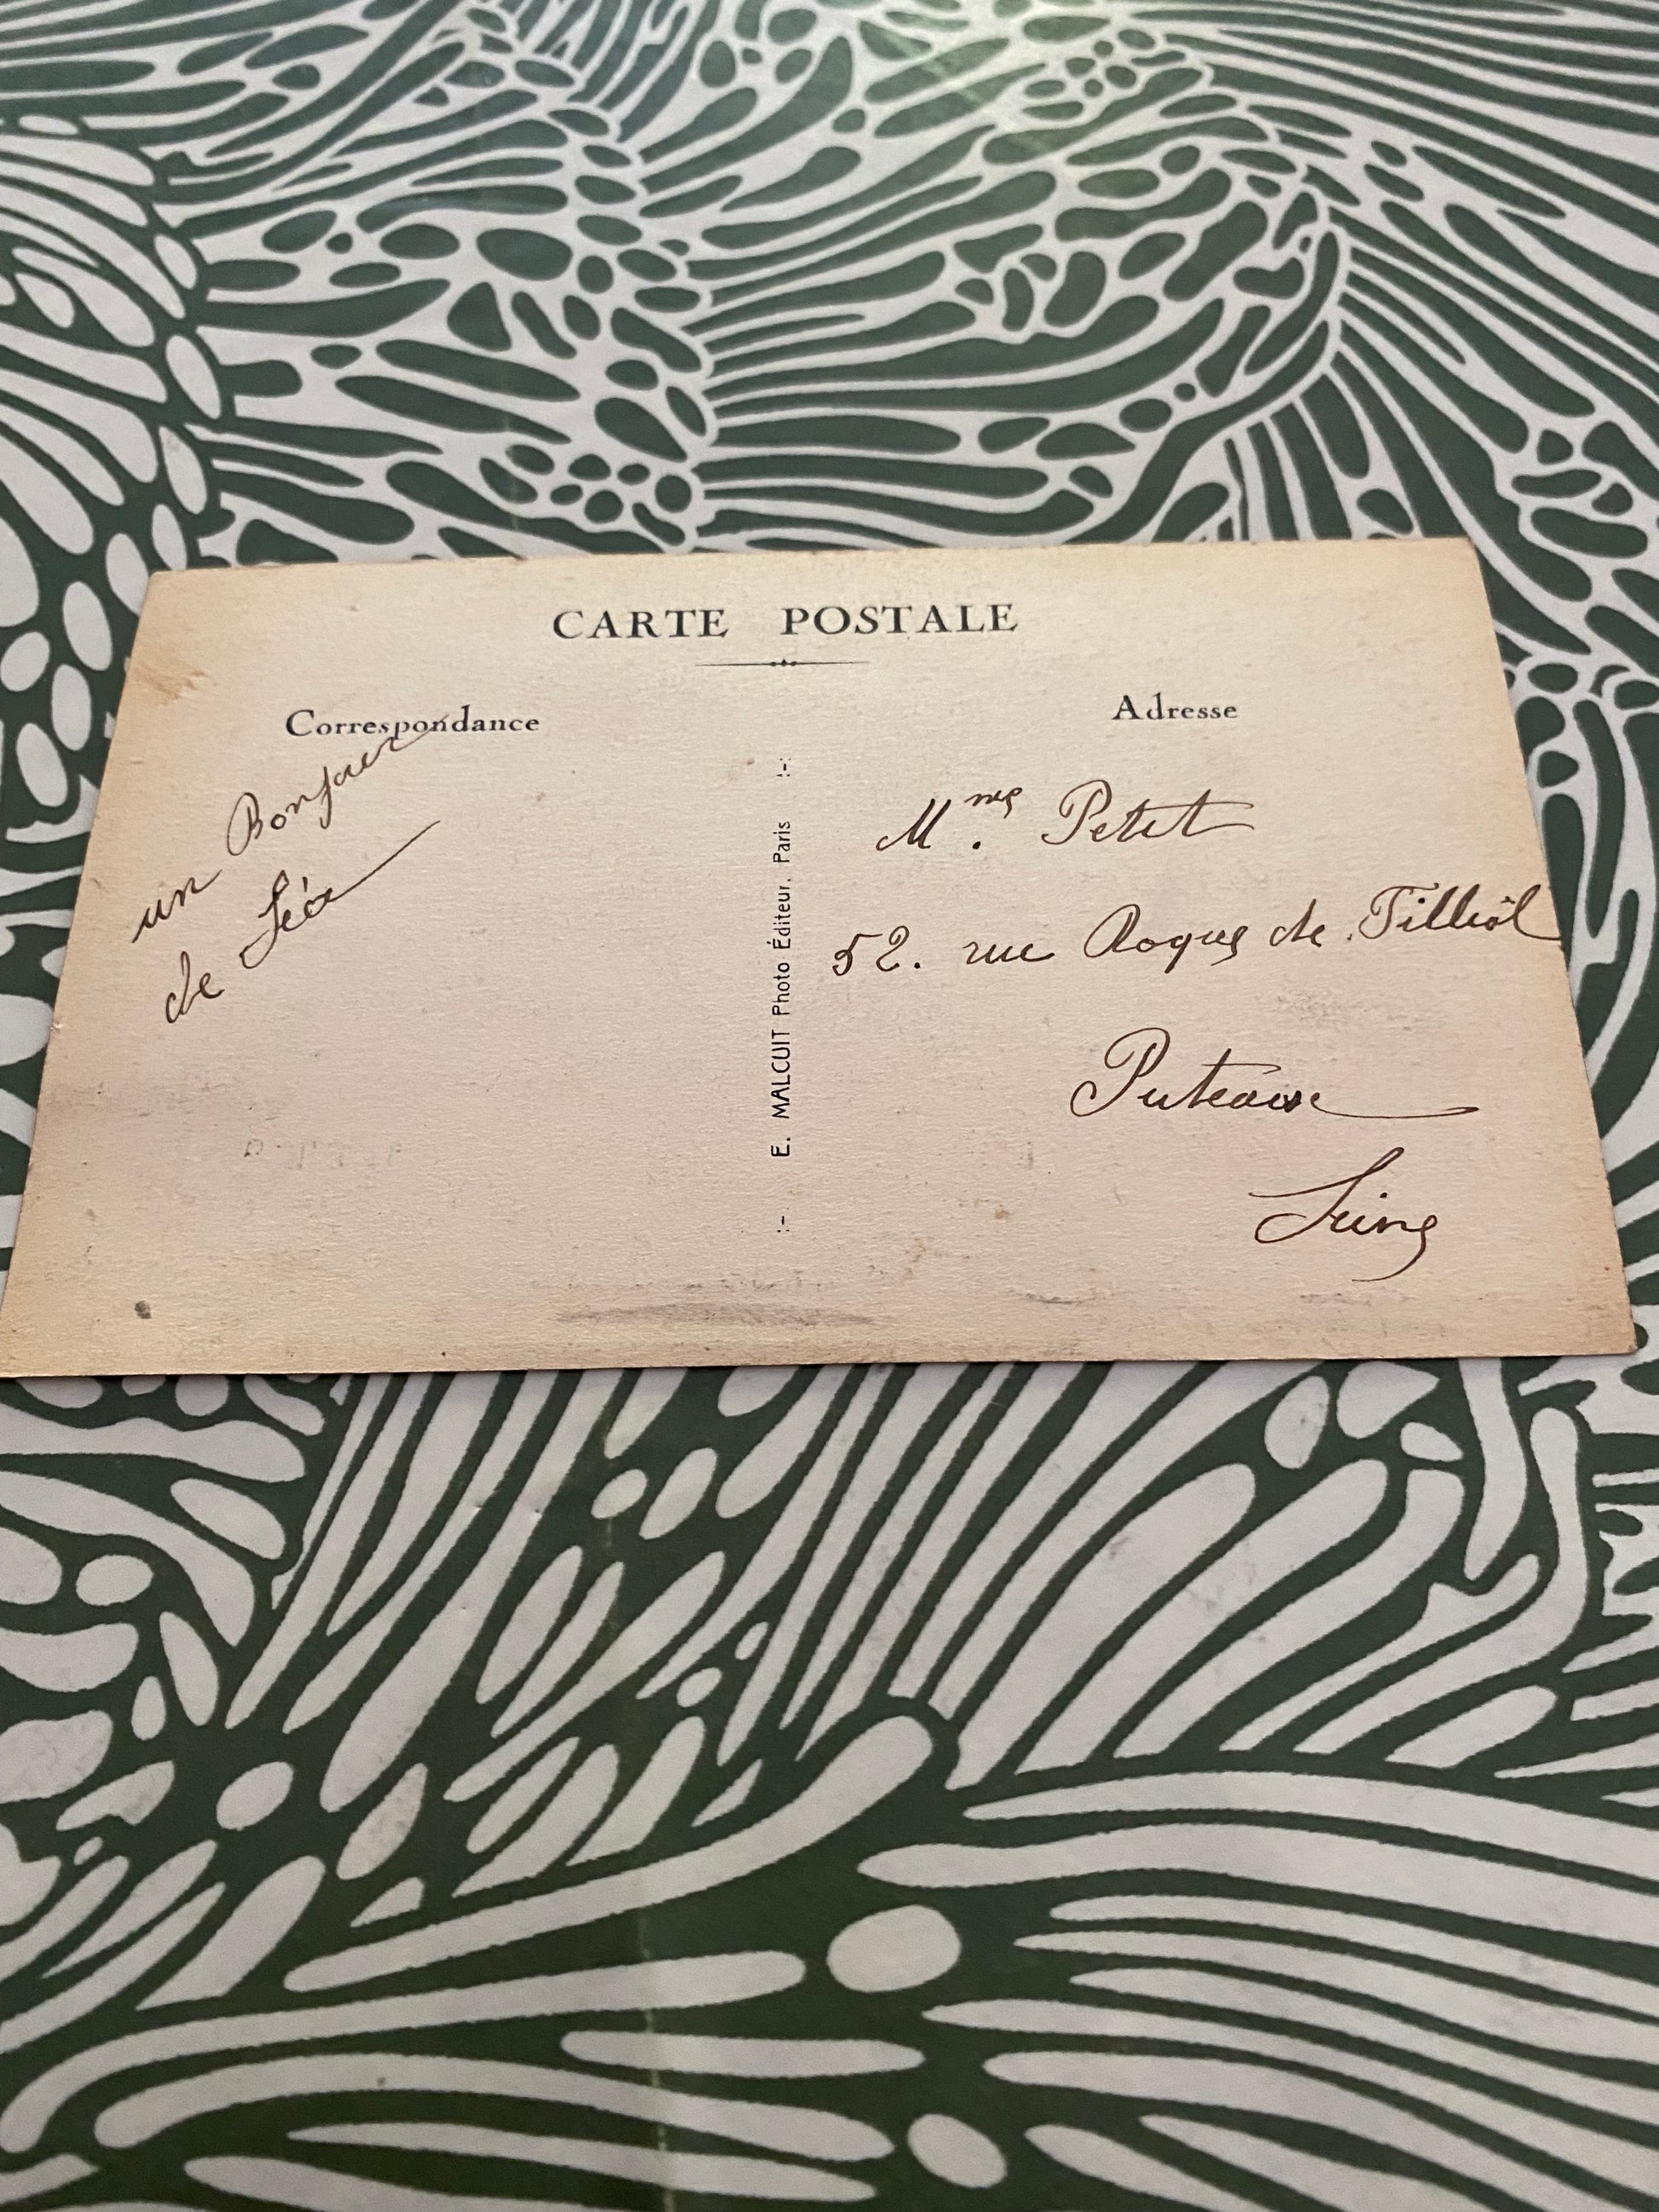 CARTE POSTALE
Correspondance
un Bonjour
de Léa
:- E. MALCUIT Photo Éditeur. Paris :-
Adresse
Mme. Petit
52. rue Roque de Filliol
Puteaux
Seine